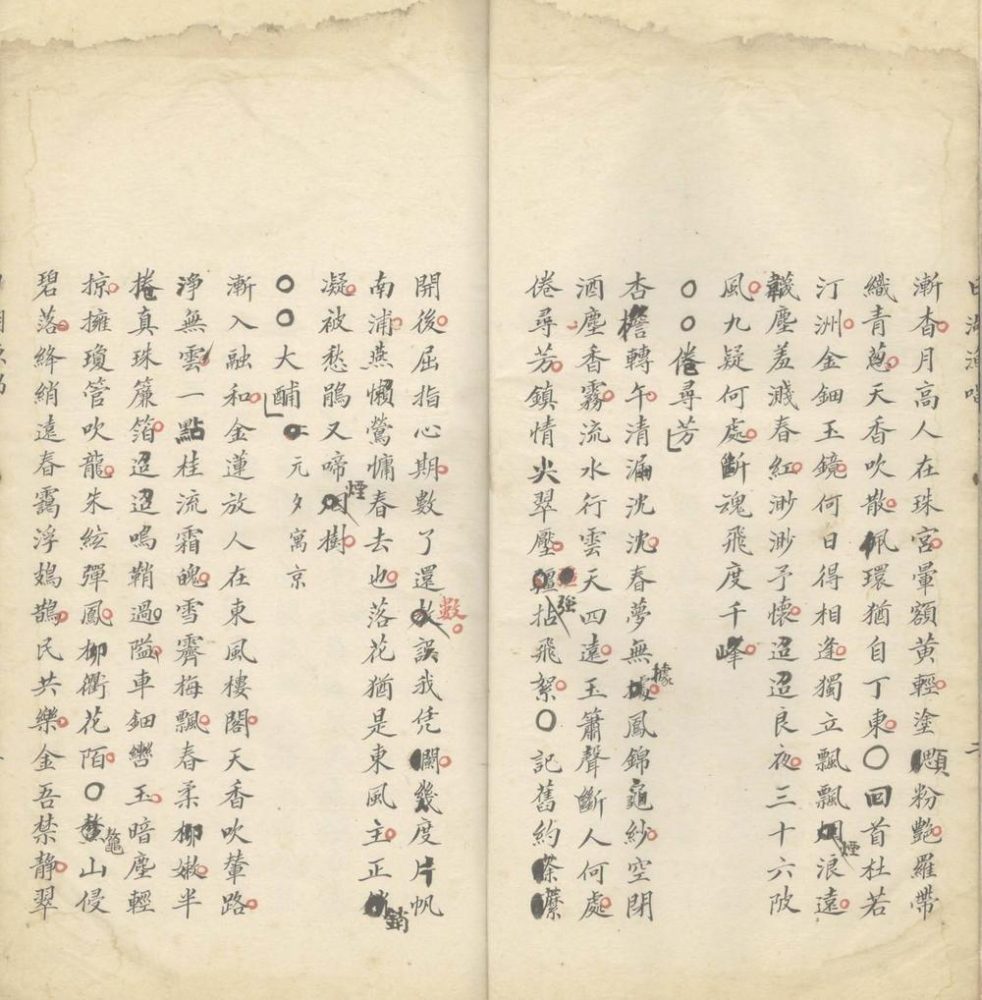 漸杳月高人在珠宮暈額黃輕塗顋粉艷羅帶
織青蔥天香吹散佩環猶自丁東〇回首杜若
汀洲金鈿玉鏡何日得相逢獨立飄飄煙浪遠
韈塵羞濺春紅渺渺予懷迢迢良夜三十六陂
風九疑何處斷魂飛度千峰
〇〇倦尋芳
杏檐轉午清漏沈沈春夢無據鳳錦龜紗空閉
酒塵香霧流水行雲天四遠玉簫聲斷人何處
倦尋芳鎮情尖翠壓強拈飛絮〇記舊約荼䕷
開後屈指心期數了還數誤我凭闌幾度片帆
南浦燕懶鶯慵春去也落花猶是東風主正銷
凝被愁鵑又啼煙樹
〇〇大酺 元夕寓京
漸入融和金蓮放人在東風樓閣天香吹輦路
淨無雲一點桂流霜魄雪霽梅飄春柔柳嫩半
捲真珠簾箔迢迢鳴鞘過隘車鈿轡玉暗塵輕
掠擁瓊管吹龍朱絃彈鳳柳衢花陌〇鼇山侵
碧落絳綃遠春靄浮鳷鵲民共樂金吾禁靜翠